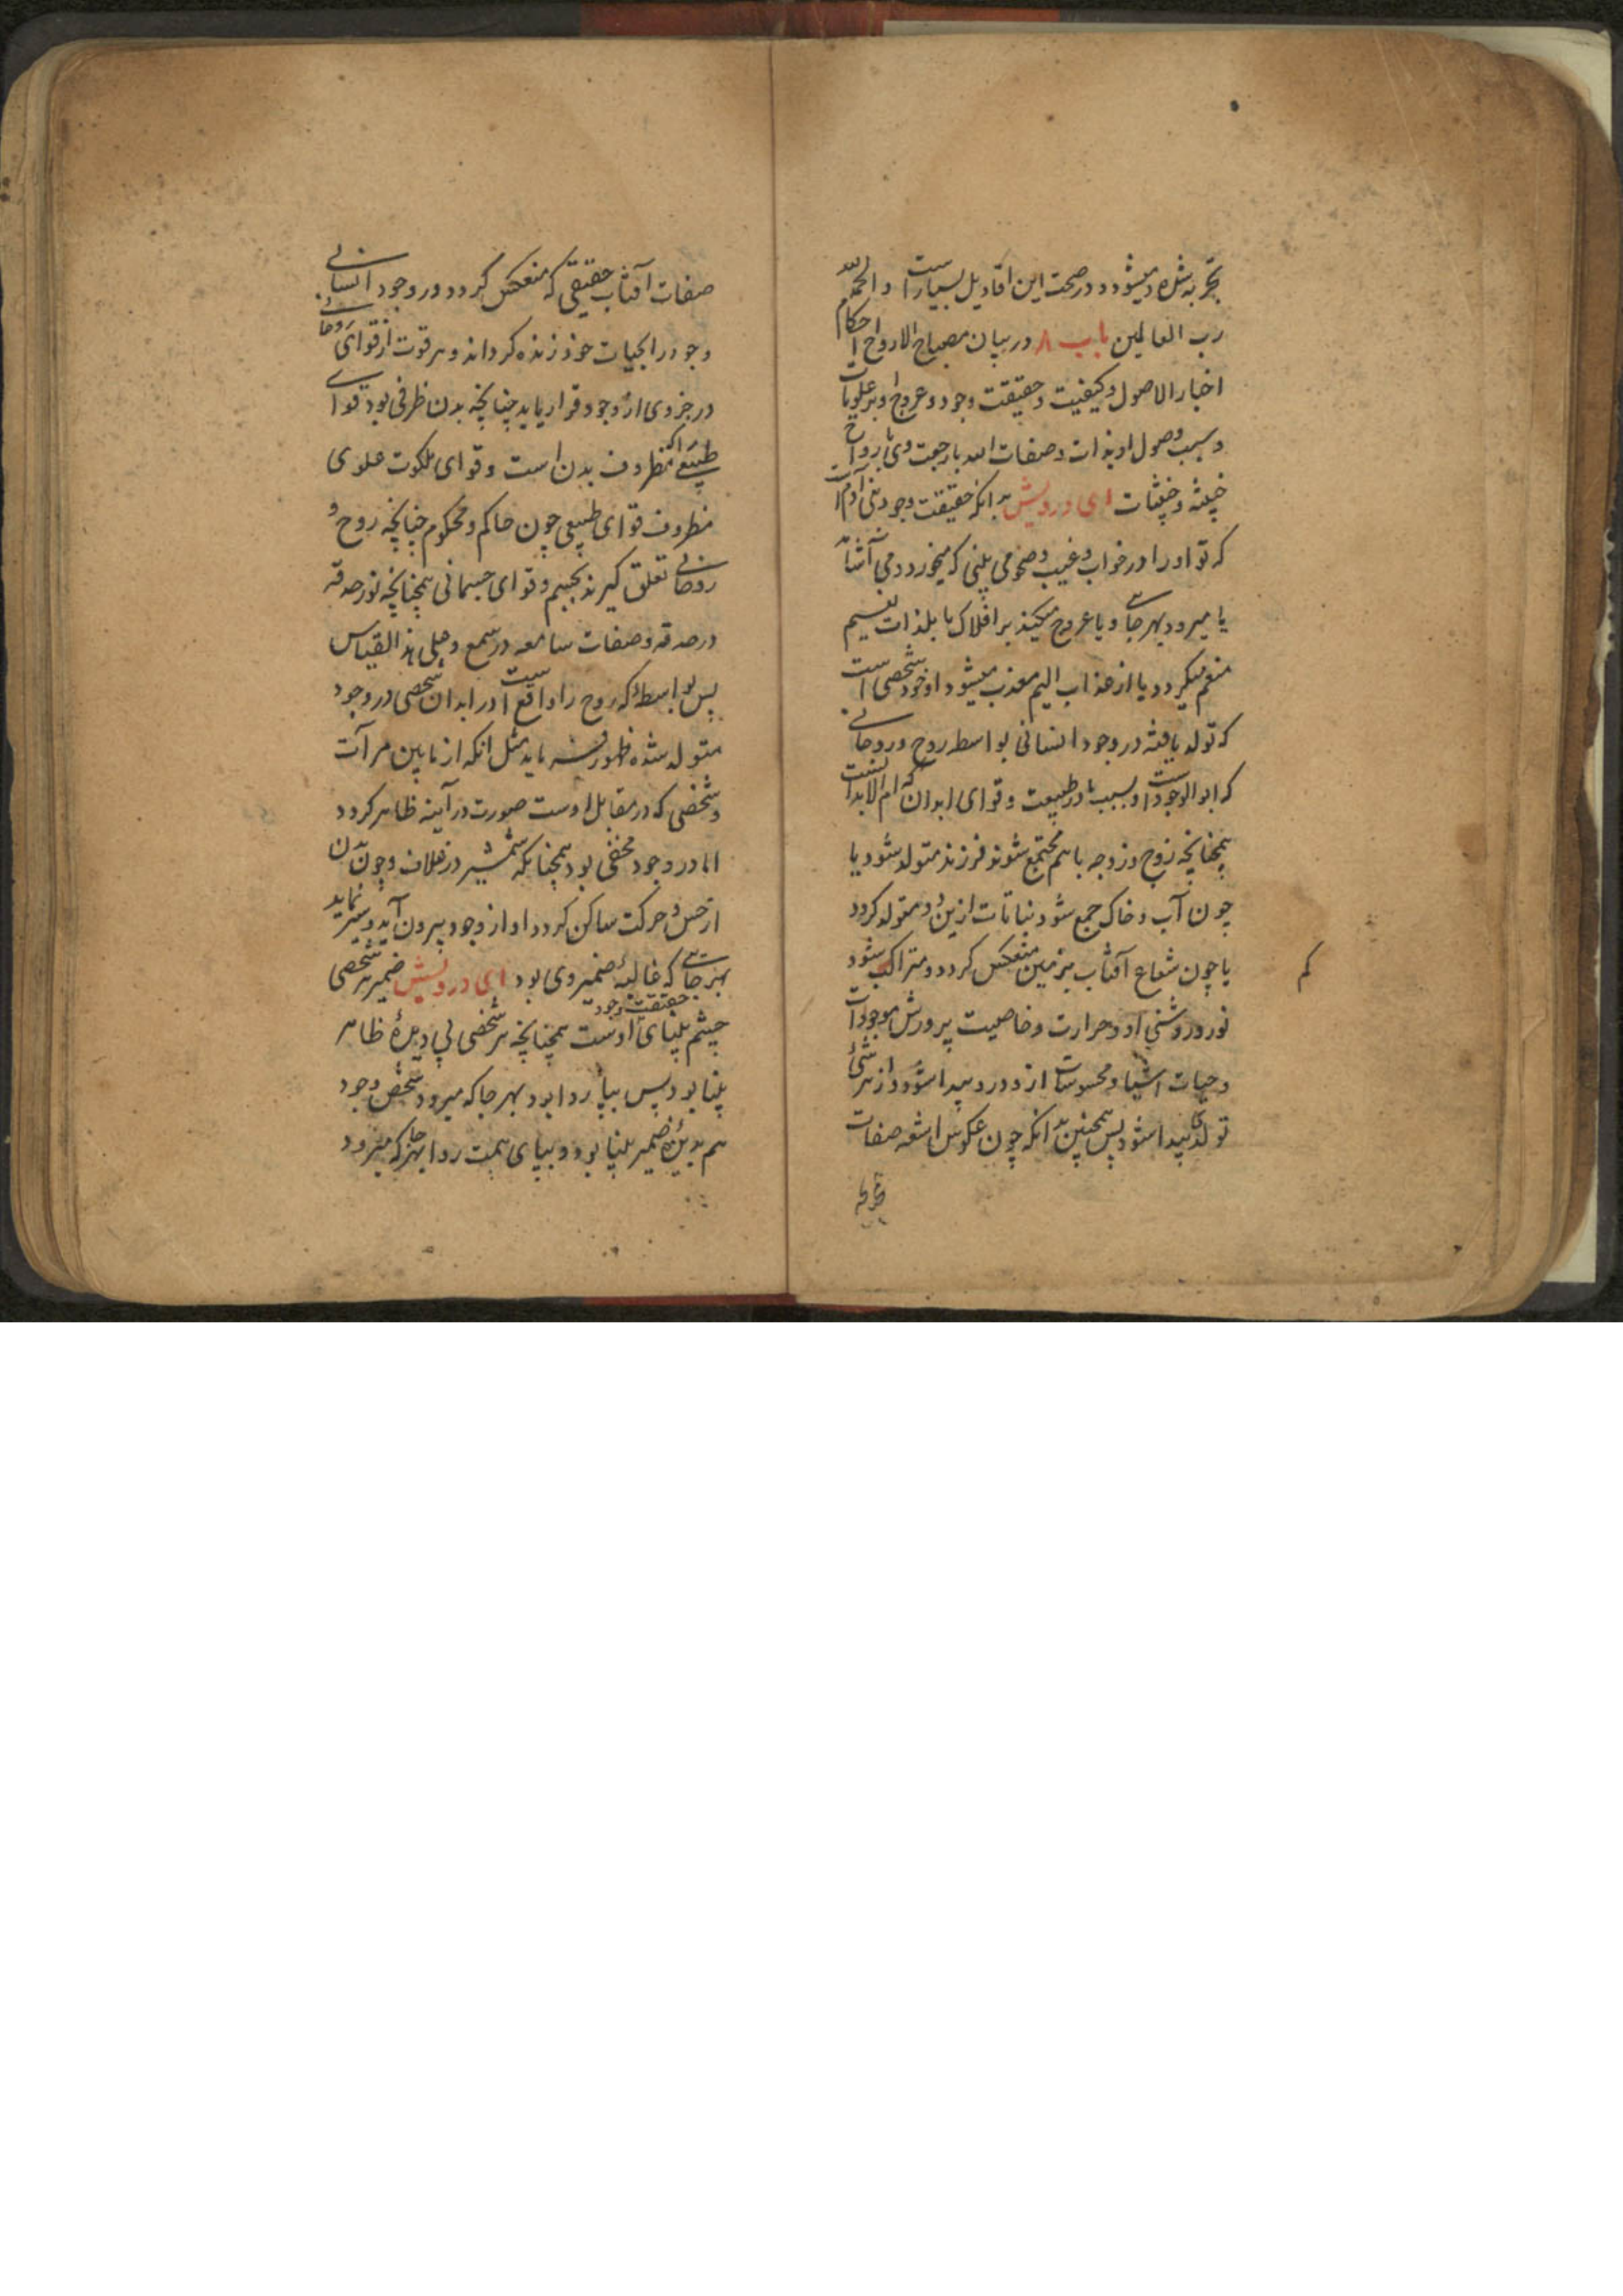 تجربه شده و میشود و در صحت این اقاویل بسیار است و الحمد لله
رب العالمین باب ۸ در بیان مصباح الارواح احکام
اخبار الاصول و کیفیت و حقیقت وجود و عروج او بر علویات
و سبب وصول او بذات و صفات الله با رجعت وی با رواح
خبیثه و خبثات ای درویش بدانکه حقیقت وجود بنی آدم است
که تو او را در خواب و غیب و صحو می بینی که میخورد و می آشامد
یا میرود بهر جای و یا عروج میکند بر افلاک یا بلذات نعیم
منعم میگردد یا از عذاب الیم معذب میشود او خود شخصی است
که تولد یافته در وجود انسانی بواسطه روح و روحانی
که ابو الوجود است و بسبب مادر طبیعت و قوای ابدان که ام الابدانست
همچنانچه زوج و زوجه با هم مجتمع شوند فرزند متولد شود یا
چون آب و خاک جمع شود نباتات ازین دو متولد گردد
یا چون شعاع آفتاب بر زمین منعکس گردد و متراکب شود
نور و روشنی او و حرارت و خاصیت پرورش موجودات
و حیات اشیا و محسوسات از دور و پیدا شود و از هر شئ
تولدی پیدا شود پس همچنین بدانکه چون عکوس اشعه صفات
کم
صفات آفتاب حقیقی که منعکس گردد در وجود انسانی
وجود را بحیات خود زنده گرداند و هر قوت از قوای روحانی
در جزوی از وجود قرار یابد چنانچه بدن ظرفی بود قوای
طبیعی را که مظروف بدن است و قوای ملکوت علوی
مظروف قوای طبیعی چون حاکم و محکوم چنانچه روح و
روحانی تعلق گیرند بجسم و قوای جسمانی همچنانچه نور حدقه
در حدقه و صفات سامعه در سمع و علی هذا القیاس
پس بواسطه که روح را واقع است در ابدان شخصی در وجود
متولد شده ظهور یابد مثل انکه از مابین مرآت
و شخصی که در مقابل اوست صورت در آینه ظاهر گردد
اما در وجود مخفی بود همچنانکه شمشیر در غلاف و چون بدن
از حس و حرکت ساکن گردد او از وجود بیرون آید و سیر نماید
بهر جای که غالبه ضمیر وی بود ای درویش ضمیر هر شخصی
چشم بینای حقیقت وجود اوست همچنانچه هر شخصی بی دیده ظاهر
بینا بود پس بپا روا بود بهر جا که میرود شخص وجود
هم بدیده ضمیر بینا بود و بپای همت روا بهر جا که میرود